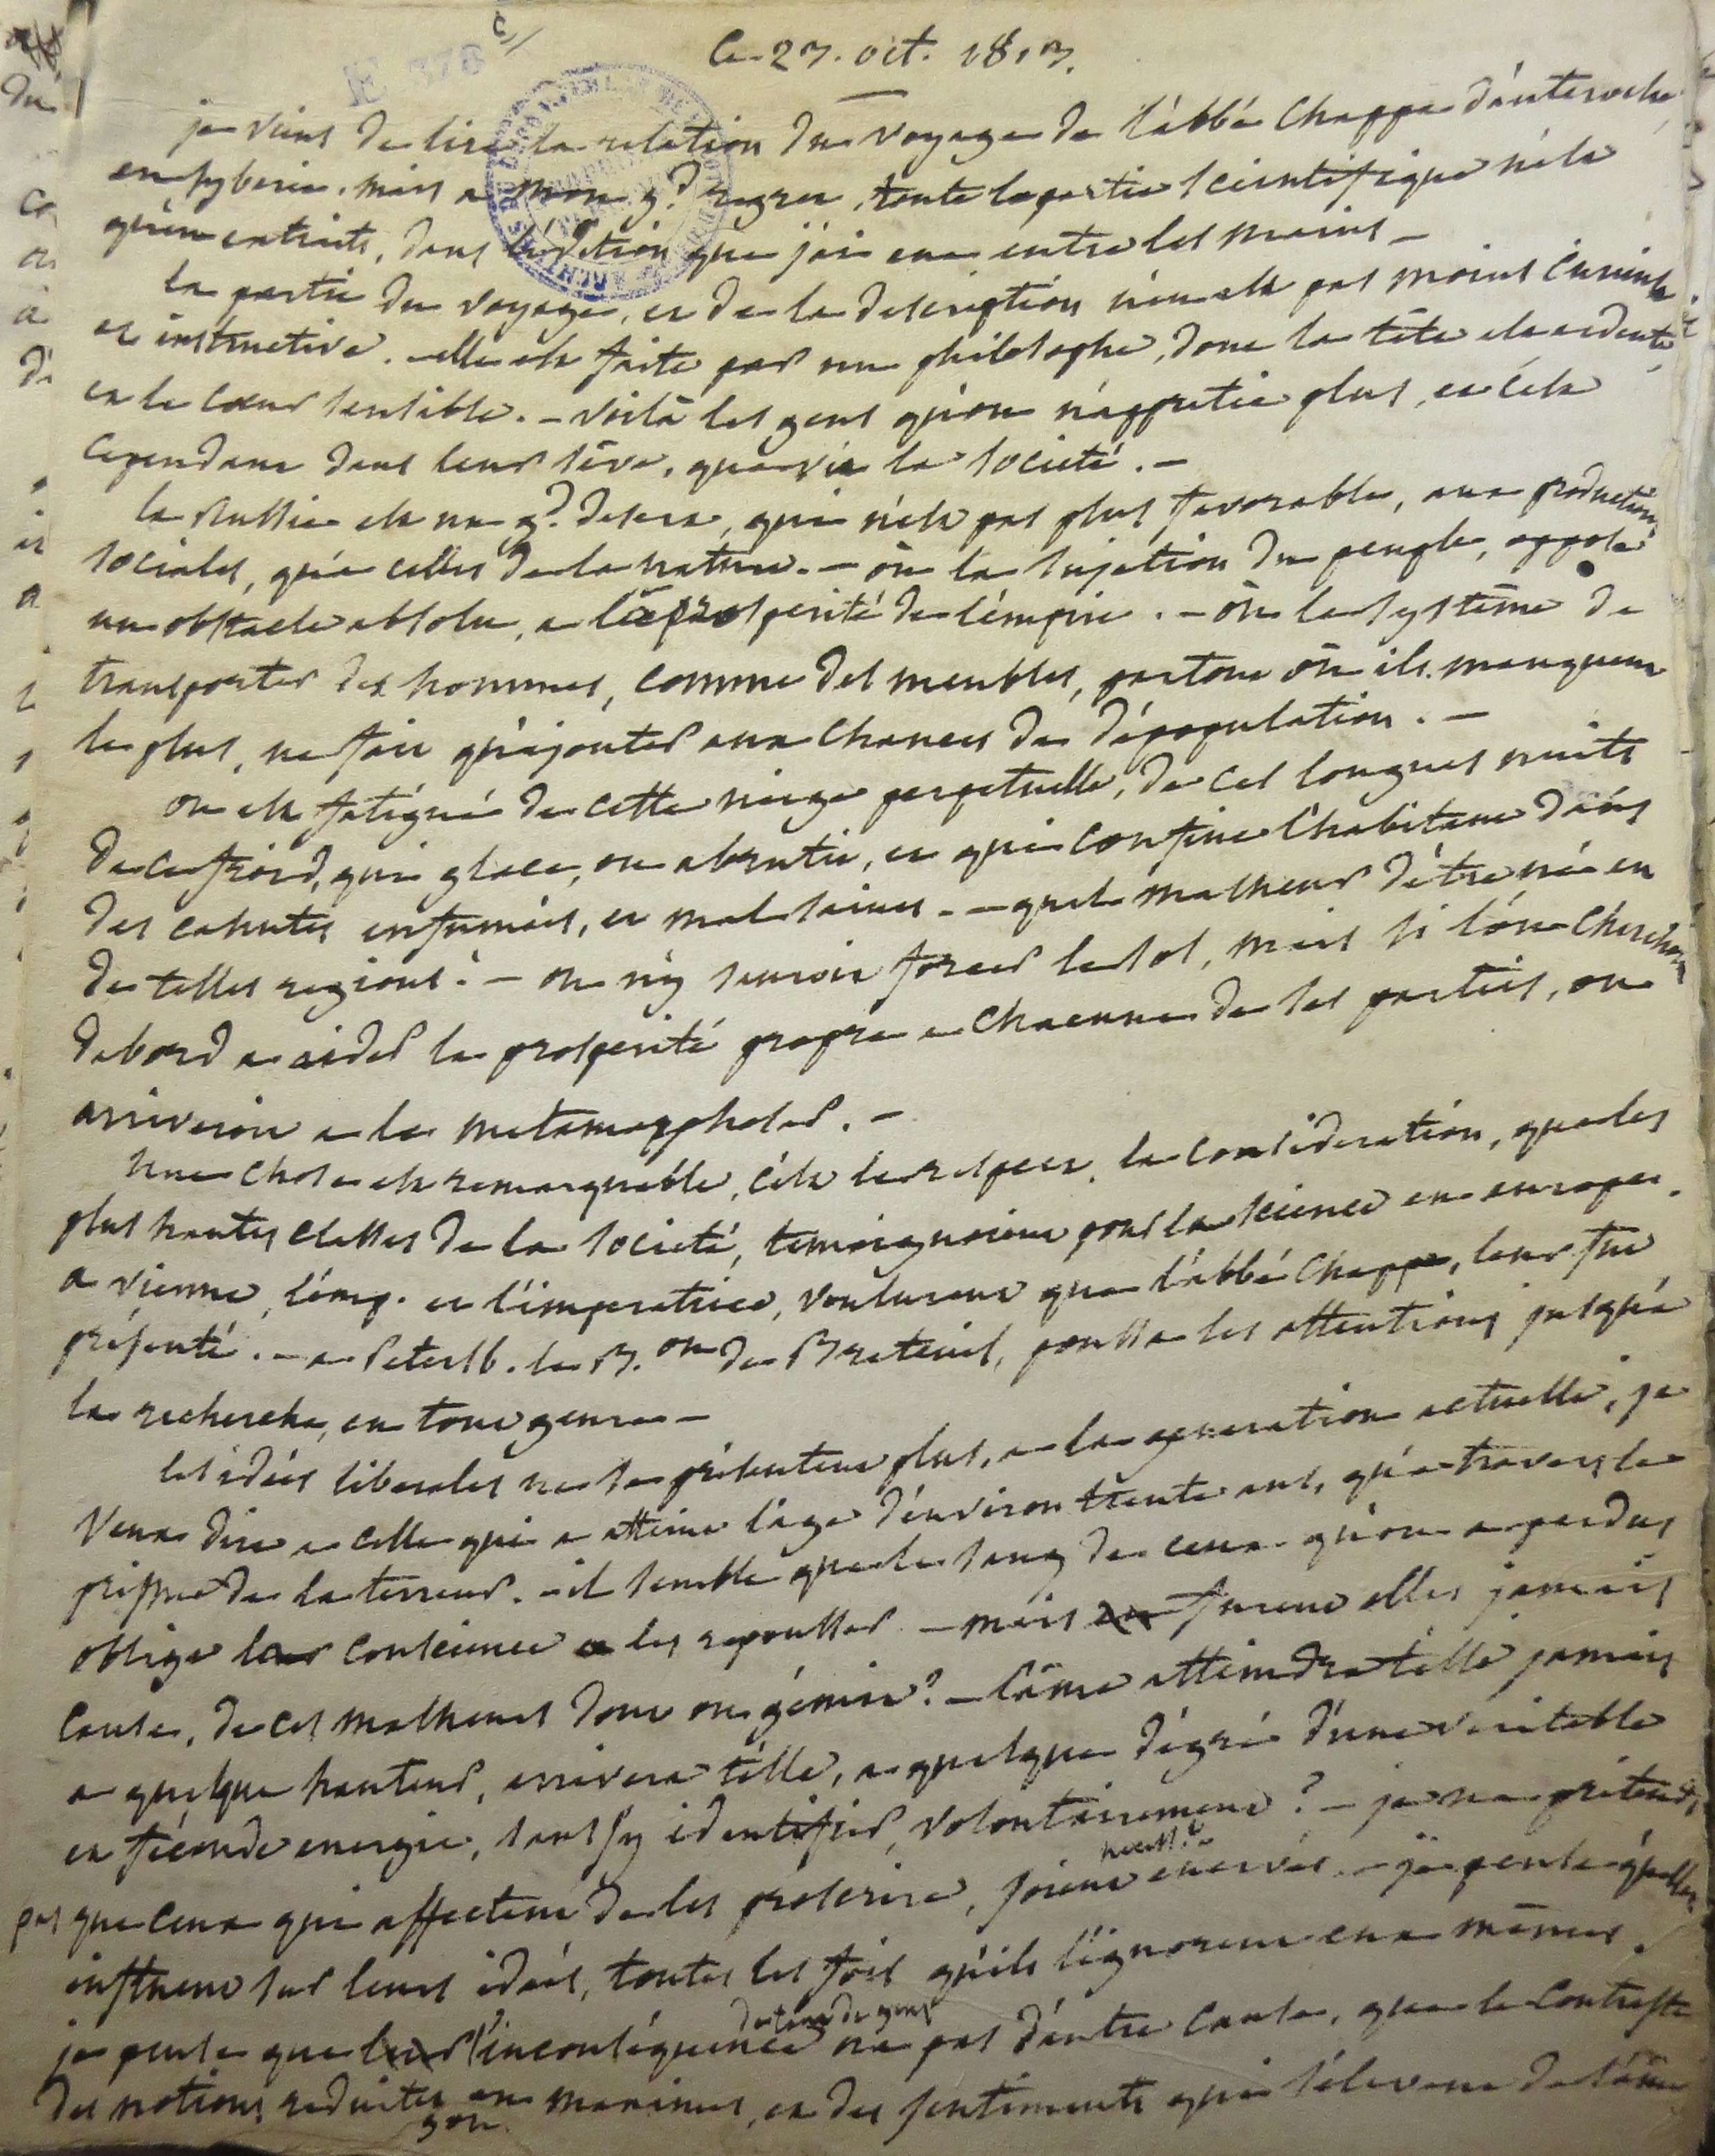 Ce 27. oct. 1813.
E 378
je viens de lire la relation du voyage de l'abbé Chappe d'auteroche
en syberie. mais a mon gd regret, toute la partie scientifique n'est
qu'en extraits, dans l'edition que j'ai eue entre les mains –
la partie du voyage, et de la description n'en est pas moins curieuse
et instructive. elle est faite par un philosophe, dont la tête est ardente,
et le cœur sensible. – voilà les gens qu'on n'apprécie plus, et c'est
cependant dans leur sève, que vit la société. –
la Russie est un gd desert, qui n'est pas plus favorable, aux productions
sociales, qu'a celles de la nature. – où la sujetion du peuple, oppose
un obstacle absolu, a la prosperité de l'empire. – où le système de
transporter des hommes, comme des meubles, partout où ils manquent
le plus, ne fait qu'ajouter aux chances de dépopulation. –
on est fatigué de cette neige perpetuelle, de ces longues nuits
de ce froid, qui glace, ou abrutit, et qui confine l'habitant dans
des cahutes enfumées, et mal saines. – quel malheur d'être né en
de telles regions! – on n'y sauroit forcer le sol, mais si l'on cherchoit
dabord a aider la prosperité propre a chacune de ses parties, on
arriveroit a le metamorphoser. –
une chose est remarquable, c'est le respect, la consideration, que les
plus hautes classes de la société, temoignoient pour la science en europe.
a vienne, l'emp. et l'imperatrice, voulurent que l'abbé Chappe, leur fut
présenté. – a Petersb. le B.on de Breteuil, poussa les attentions jusqu'a
la recherche, en tout genre –
les idées liberales ne se présentent plus, a la generation actuelle, je
veux dire a celle qui a atteint l'age d'environ trente ans, qu'a travers le
prisme de la terreur. – il semble que le sang de ceux qu'on a perdus
oblige leur conscience a les repousser – mais furent elles jamais
cause, de ces malheurs dont on gémit? – l'ame atteindra t'elle jamais
a quelque hauteur, arrivera t'elle, a quelque dégré d'une veritable
et féconde energie, sans s'y identifier, volontairement? – je ne prétends
pas que ceux qui affectent de les proscrire, soient énervés – je pense qu'elles
influent sur leurs idées, toutes les fois qu'ils s'ignorent eux mêmes.
de tant de gens
je pense que l'inconséquence n'a pas d'autre cause, que le contraste
des notions reduites en maximes, et des sentiments qui s'elevent de l'ame